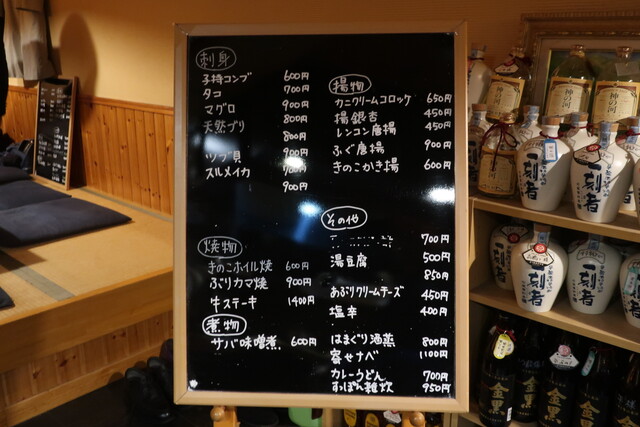 刺身
子持コンブ 600円
タコ 700円
マグロ 900円
天然ブリ 800円
800円
ツブ貝 900円
スルメイカ 700円
900円
焼物
きのこホイル焼 600円
ぶりカマ焼 900円
牛ステーキ 1400円
煮物
サバ味噌煮 600円
揚物
カニクリームコロッケ 650円
揚銀杏 450円
レンコン唐揚 450円
ふぐ唐揚 900円
きのこかき揚 600円
その他
700円
湯豆腐 500円
850円
あぶりクリームチーズ 450円
塩辛 400円
はまぐり酒蒸 800円
寄せナベ 1100円
カレーうどん 700円
すっぽん雑炊 950円
神の河
神の河
一刻者
一刻者
一刻者
一刻者
金黒
金黒